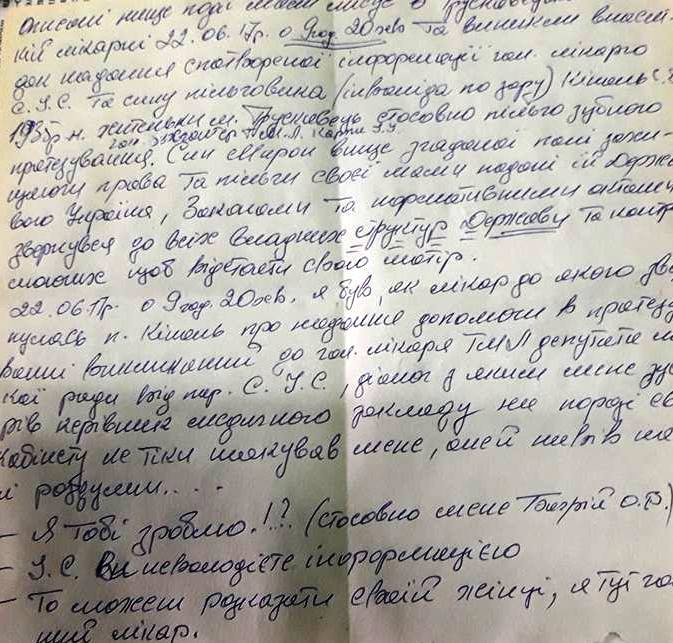 Описані нище події мали місце в Трускавецьк
кій лікарні 22.06.17р. о 9 год. 20 хв та виникли внаслі-
док надання спотвореної інформації гол. лікарю
С. І. С. та сину пільговика (інваліда по зору) Кіналь С.
1935 р.н. жительки м. Трускавець стосовно пільго зубного
протезування. Син Мирон вище згаданої пані зажи-
щаючи права та пільги своєї мами надані їй Держа
вою Україна, Законами та нормативними актами
звернувся до всіх владних структур Держави та контр
щоб відстати свою матір.
22.06.17р. о 9 год. 20 хв. я був, як лікар до якого зве
нулась п. про надання допомоги в протезу
ванні до гол. лікаря ТМЛ депутата м
кої ради від пар. С. І. С., діалог з яким мене зу
рів керівник медичного закладу на порозі св
кабінету не тіки шокував мене, а
і роздуми....
- Я тобі зроблю.!? (стосовно мене О.В.)
- І. С. Ви неволодієте інформацією
- То можеш розказати своїй жінці, я тут го
ний лікар.